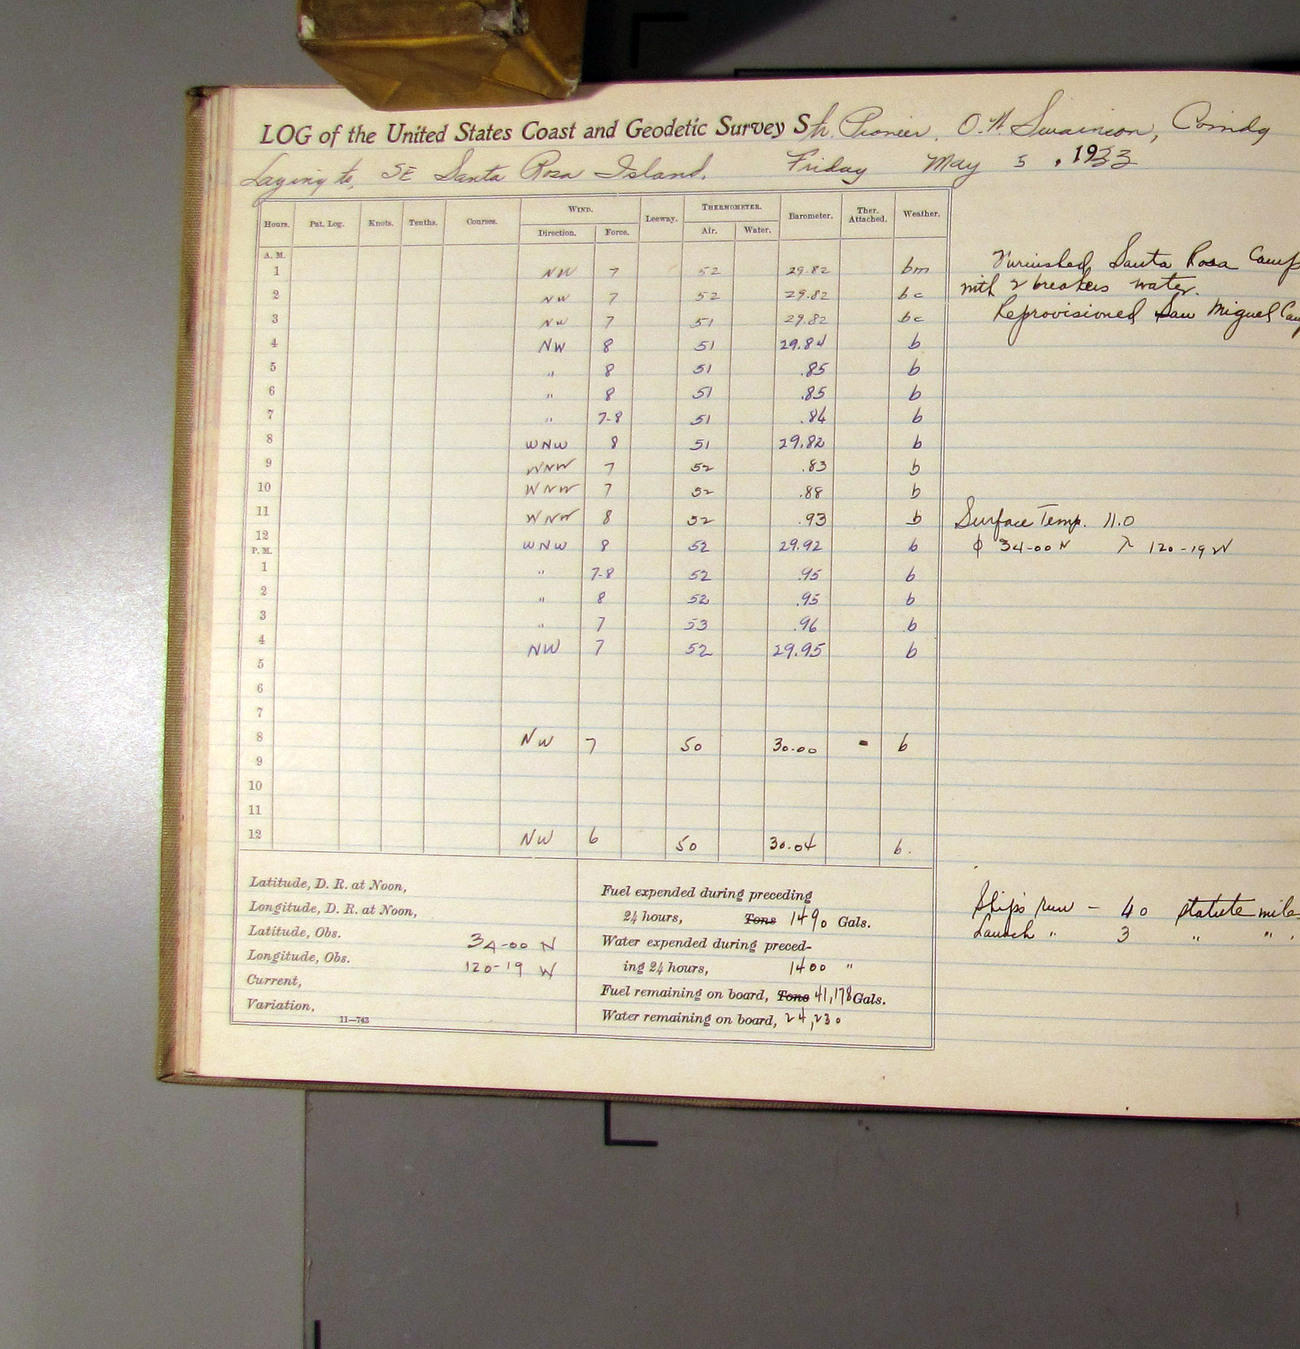 LOG of the United States Coast and Geodetic Survey Sh. Pioneer, O.W. Swainson, Comdg
Laying to, SE Santa Rosa Island. Friday May 5, 1933
Hours. Pat. Log. Knots. Tenths. Courses. WIND. Leeway. THERMOMETER. Barometer. Ther. Attached. Weather.
Direction. Force. Air. Water.
A. M.
1 NW 7 52 29.82 bm
2 NW 7 52 29.82 bc
3 NW 7 51 29.82 bc
4 NW 8 51 29.84 b
5 " 8 51 .85 b
6 " 8 51 .85 b
7 " 7-8 51 .84 b
8 WNW 8 51 29.82 b
9 WNW 7 52 .83 b
10 WNW 7 52 .88 b
11 WNW 8 52 .93 b
12 WNW 8 52 29.92 b
P. M.
1 " 7-8 52 .95 b
2 " 8 52 .95 b
3 " 7 53 .96 b
4 NW 7 52 29.95 b
5
6
7
8 NW 7 50 30.00 - b
9
10
11
12 NW 6 50 30.04 b.
Furnished Santa Rosa Camp
with 2 breakers water.
Reprovisioned San Miguel
Surface Temp. 11.0
φ 34-00 N λ 120-19 W
Ships run - 40 statute
Launch " 3 " " .
Latitude, D. R. at Noon,
Longitude, D. R. at Noon,
Latitude, Obs. 34-00 N
Longitude, Obs. 120-19 W
Current,
Variation,
11—743
Fuel expended during preceding
24 hours, Tons 1490 Gals.
Water expended during preced-
ing 24 hours, 1400 "
Fuel remaining on board, Tons 41,178 Gals.
Water remaining on board, 24,230